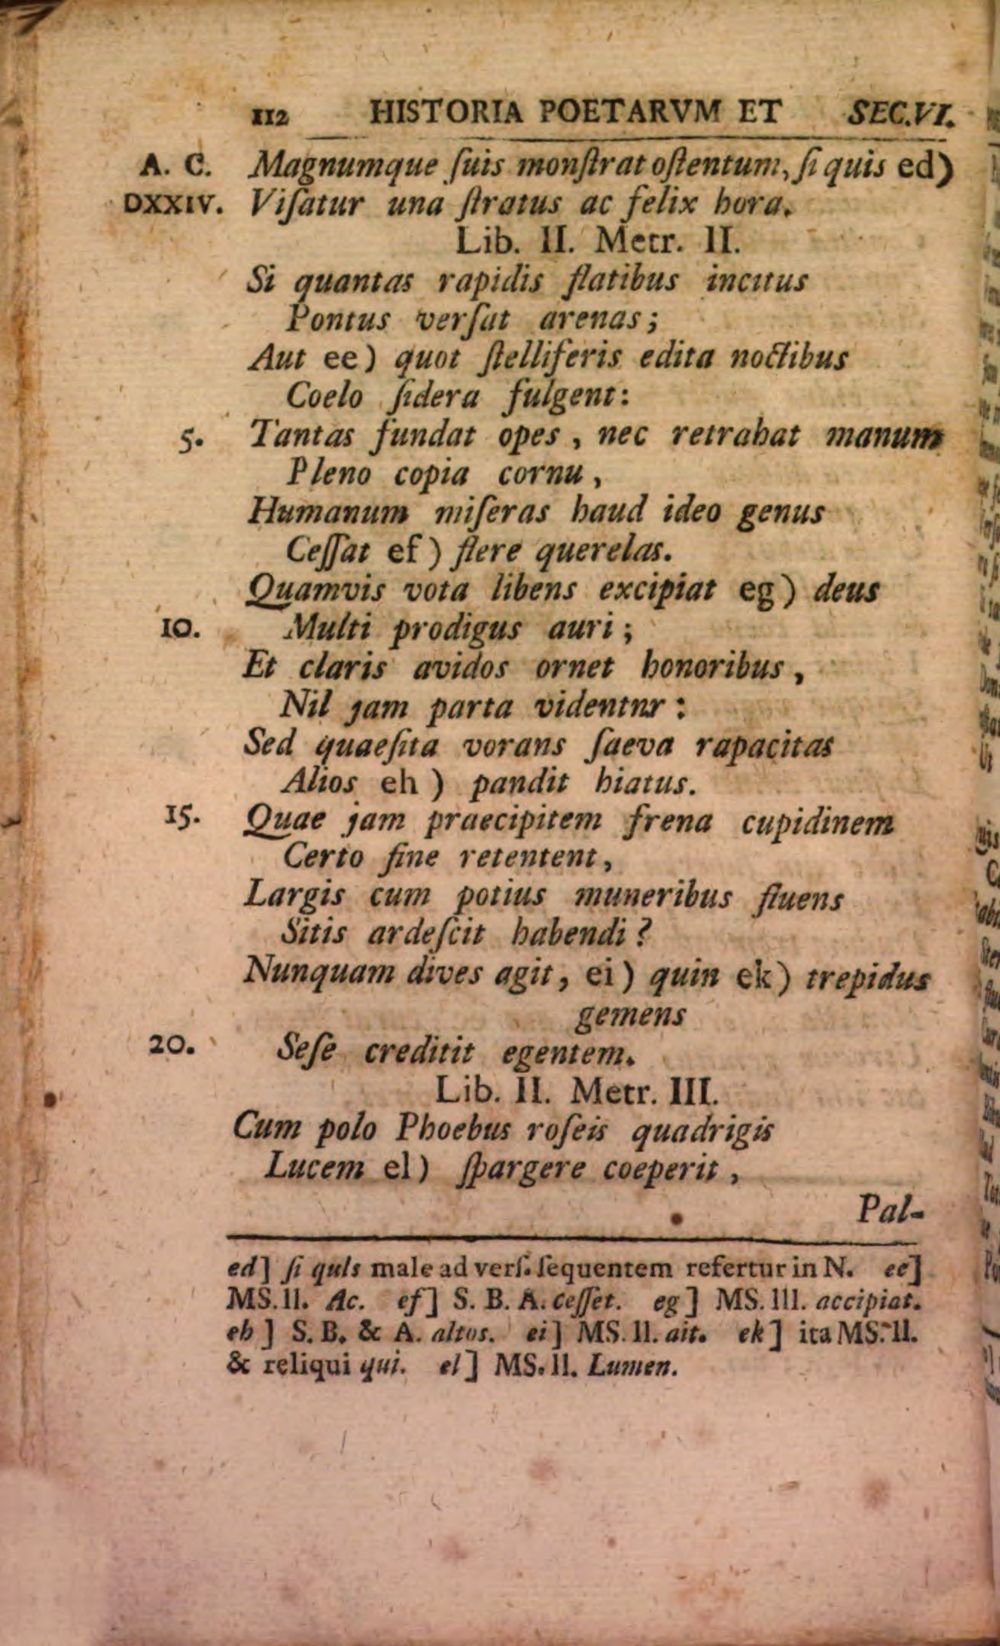 112 HISTORIA POETARVM ET SEC.VI.
A. C. Magnumque ſuis monſtrat oſtentum, ſi quis ed)
DXXIV. Viſatur una ſtratus ac felix hora.
Lib. II. Metr. II.
Si quantas rapidis flatibus incitus
Pontus verſat arenas;
Aut ee) quot ſtelliferis edita noctibus
Coelo ſidera fulgent:
5. Tantas fundat opes, nec retrahat manum
Pleno copia cornu,
Humanum miſeras haud ideo genus
Ceſſat ef) flere querelas.
Quamvis vota libens excipiat eg) deus
10. Multi prodigus auri;
Et claris avidos ornet honoribus,
Nil jam parta videntnr:
Sed quaeſita vorans ſaeva rapacitas
Alios eh) pandit hiatus.
15. Quae jam praecipitem frena cupidinem
Certo fine retentent,
Largis cum potius muneribus fluens
Sitis ardeſcit habendi?
Nunquam dives agit, ei) quin ek) trepidus
gemens
20. Seſe creditit egentem.
Lib. II. Metr. III.
Cum polo Phoebus roſeis quadrigis
Lucem el) ſpargere coeperit,
Pal-
ed] ſi quis male ad verſ. ſequentem refertur in N. ee]
MS. II. Ac. ef] S. B. A. ceſſet. eg] MS. III. accipiat.
eh] S. B. & A. altos. ei] MS. II. ait. ek] ita MS. II.
& reliqui qui. el] MS. II. Lumen.